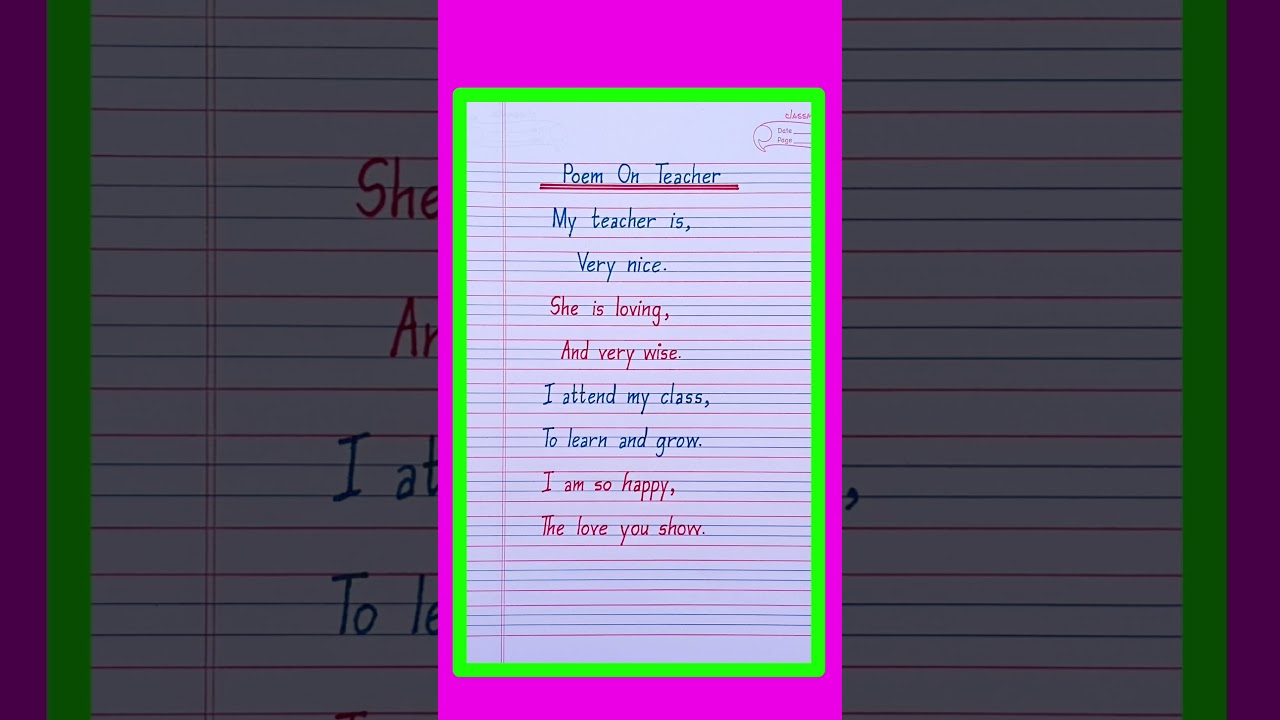 classm
Date
Page
Poem On Teacher
My teacher is,
Very nice.
She is loving,
And very wise.
I attend my class,
To learn and grow.
I am so happy,
The love you show.
She
I at
To le
,